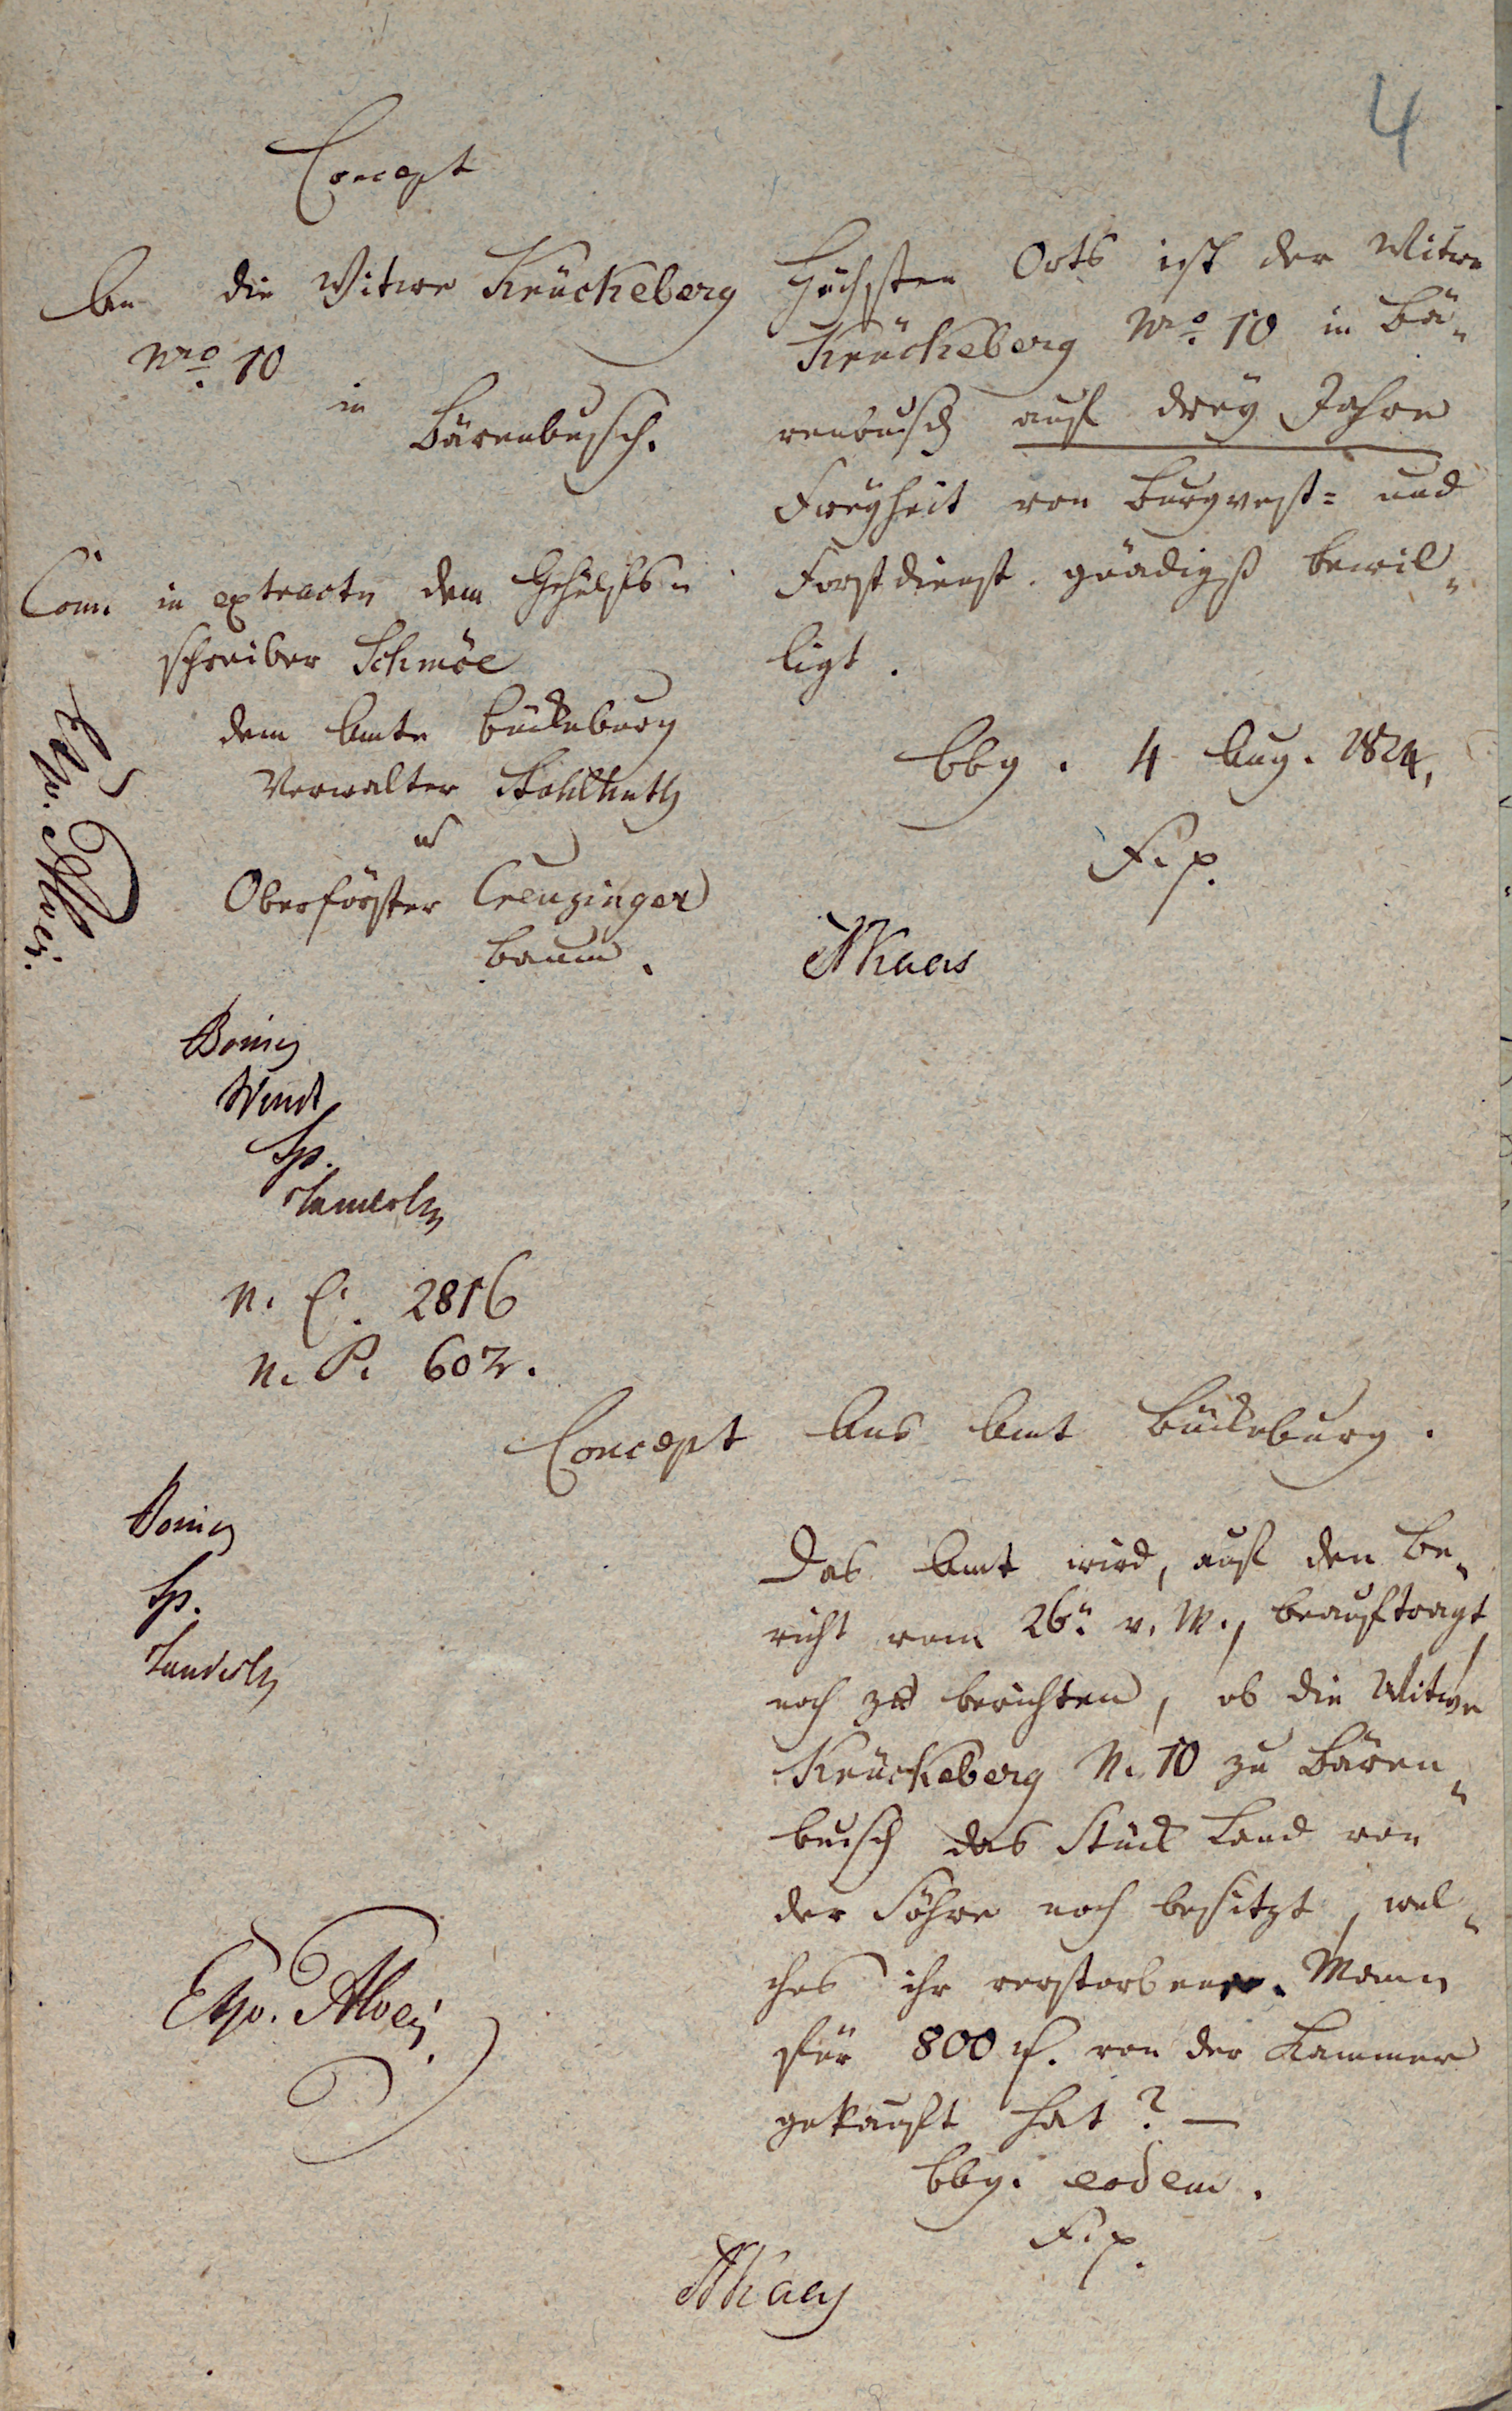 4
Concept
An die Witwe Krückeberg
Nro. 10
in
Bärenbusch.
Höchsten Orts ist der Witwe
Krückeberg Nro. 10 in Bä-
renbusch auf drey Jahre
Freyheit von Burgvest= und
Forstdienst gnädigst bewil-
ligt.
Bbg. 4 Aug. 1824.
F. p.
Com in extractu dem Gehülfs-
schreiber Schmöe
dem Amte Bückeburg
Verwalter Stohlhuth
u
Oberförster Creuzinger
baum.
N. E. 2816
N. P. 602.
Concept Ans Amt Bückeburg.
Das Amt wird, auf den Be-
richt vom 26n v. M., beauftragt,
noch zu berichten, ob die Witwe
Krückeberg N. 10 zu Bären-
busch das Stück Land von
der Föhre noch besitzt, wel-
ches ihr verstorbener Mann
für 800 rf. von der Kammer
gekauft hat? —
Bbg. eodem.
F. p.